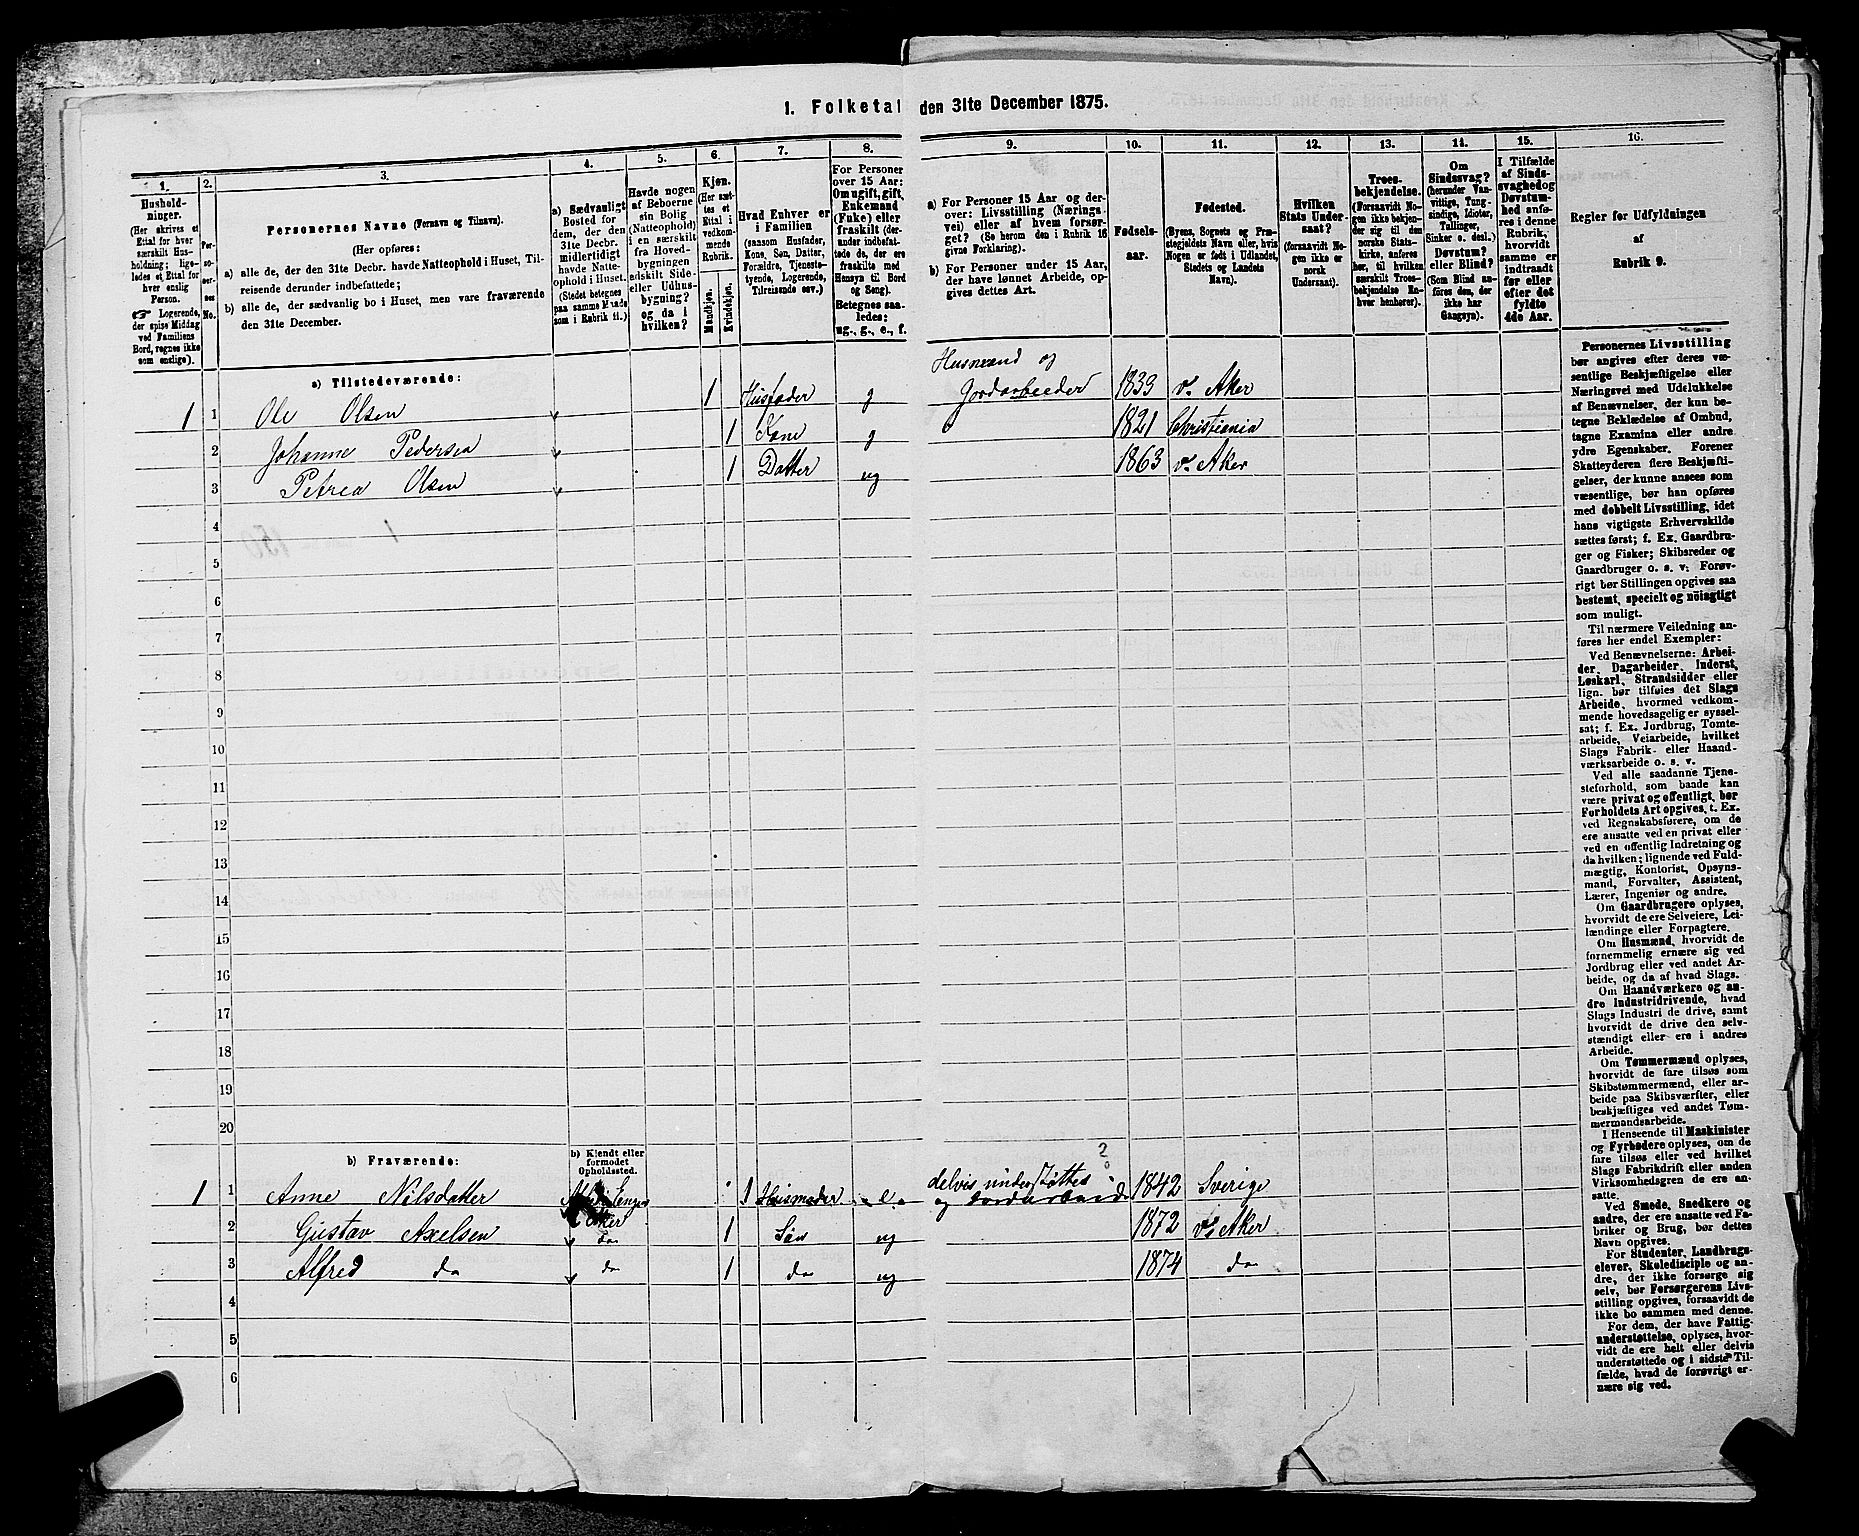 1. Folketal den 31te December 1875.
1.
Hushold-
ninger.
(Her skrives et
Ettal for hver
særskilt Hus-
holdning; lige-
ledes et Ettal for
hver enslig
Person.
☞ Logerende,
der spise Middag
ved Familiens
Bord, regnes ikke
som enslige).
2.
Per-
so-
ner-
nes
No.
3.
Personernes Navne (Fornavn og Tilnavn).
(Her opføres:
a) alle de, der den 31te Decbr. havde Natteophold i Huset, Til-
reisende derunder indbefattede;
b) alle de, der sædvanlig bo i Huset, men vare fraværende
den 31te December.
4.
a) Sædvanligt
Bosted for
dem, der den
31te Decbr.
midlertidigt
havde Natte-
ophold i Huset.
(Stedet betegnes
paa samme Maade
som i Rubrik 11.)
5.
Havde nogen
af Beboerne
sin Bolig
(Natteophold)
i en særskilt
fra Hoved-
bygningen
adskilt Side-
eller Udhus-
bygning?
og da i
hvilken?
6.
Kjøn.
(Her sæt-
tes et
Ettal i
vedkom-
mende
Rubrik.
Mandkjøn.
Kvindekjøn.
7.
Hvad Enhver er
i Familien
(saasom Husfader,
Kone, Søn, Datter,
Forældre, Tjeneste-
tyende, Logerende,
Tilreisende osv.)
8.
For Personer
over 15 Aar:
Om ugift, gift,
Enkemand
(Enke) eller
fraskilt (der-
under indbefat-
tede de, der ere
fraskilte med
Hensyn til Bord
og Seng).
Betegnes saa-
ledes:
ug., g., e., f.
9.
a) For Personer 15 Aar og der-
over: Livsstilling (Nærings-
vei) eller af hvem forsør-
get? (Se herom den i Rubrik 16
givne Forklaring).
b) For Personer under 15 Aar,
der have lønnet Arbeide, op-
gives dettes Art.
10.
Fødsels-
aar.
11.
Fødested.
(Byens, Sognets og Præ-
stegjeldets Navn eller, hvis
Nogen er født i Udlandet,
Stedets og Landets
Navn).
12.
Hvilken
Stats Under-
saat?
(forsaavidt No-
gen ikke er
norsk
Undersaat).
13.
Troes-
bekjendelse.
(Forsaavidt No-
gen ikke bekjen-
der sig til den
norske Stats-
kirke, anføres
her, til hvilken
særskilt Troes-
bekjendelse En-
hver henhører).
14.
Om
Sindssvag?
(herunder Van-
vittige, Tung-
sindige, Idioter,
Tullinger,
Sinker o. desl.)
Døvstum?
eller Blind?
(Som Blind an-
føres den, der
ikke har
Gangsyn).
15.
I Tilfælde
af Sinds-
svaghed og
Døvstum-
hed anfø-
res i denne
Rubrik,
hvorvidt
samme er
indtraadt
før eller
efter det
fyldte
4de Aar.
16.
Regler for Udfyldningen
af
Rubrik 9.
a) Tilstedeværende:
1 1 Ole Olsen 1 Husfader g Husmand og Jordarbeider 1833 v. Aker
2 Johanne Pedersen 1 Kone g 1821 Christiania
3 Petrea Olsen 1 Datter ug 1863 v. Aker
4
5
6
7
8
9
10
11
12
13
14
15
16
17
18
19
20
b) Fraværende:
b) Kjendt eller
formodet
Opholdssted.
1 1 Anne Nilsdatter Aker 1 Husmoder e. delvis understøttes og Jordarbeide ? 1842 Sverige
2 Gustav Axelsen do 1 Søn ug 1872 v. Aker
3 Alfred do do 1 do ug 1874 do
4
5
6
Personernes Livsstilling
bør angives efter deres væ-
sentlige Beskjæftigelse eller
Næringsvei med Udelukkelse
af Benævnelser, der kun be-
tegne Beklædelse af Ombud,
tagne Examina eller andre
ydre Egenskaber. Forener
Skatteyderen flere Beskjæfti-
gelser, der kunne ansees som
væsentlige, bør han opføres
med dobbelt Livsstilling, idet
hans vigtigste Erhvervskilde
sættes først; f. Ex. Gaardbru-
ger og Fisker; Skibsreder og
Gaardbruger o. s. v. Forøv-
rigt bør Stillingen opgives saa
bestemt, specielt og nöiagtigt
som muligt.
Til nærmere Veiledning an-
føres her endel Exempler:
Ved Benævnelserne: Arbei-
der, Dagarbeider, Inderst,
Løskarl, Strandsidder eller
lign. bør tilføies det Slags
Arbeide, hvormed vedkom-
mende hovedsagelig er syssel-
sat; f. Ex. Jordbrug, Tomte-
arbeide, Veiarbeide, hvilket
Slags Fabrik- eller Haand-
værksarbeide o. s. v.
Ved alle saadanne Tjene-
steforhold, som baade kan
være privat og offentligt, bør
Forholdets Art opgives, t. Ex.
ved Regnskabsførere, om de
ere ansatte ved en privat eller
ved en offentlig Indretning og
da hvilken; lignende ved Fuld-
mægtig, Kontorist, Opsyns-
mand, Forvalter, Assistent,
Lærer, Ingeniør og andre.
Om Gaardbrugere oplyses,
hvorvidt de ere Selveiere, Lei-
lændinge eller Forpagtere.
Om Husmænd, hvorvidt de
fornemmelig ernære sig ved
Jordbrug eller ved andet Ar-
beide, og da af hvad Slags.
Om Haandværkere og an-
dre Industridrivende, hvad
Slags Industri de drive, samt
hvorvidt de drive den selv-
stændigt eller ere i andres
Arbeide.
Om Tømmermænd oplyses,
hvorvidt de fare tilsøs som
Skibstømmermænd, eller ar-
beide paa Skibsværfter, eller
beskjæftiges ved andet Tøm-
mermandsarbeide.
I Henseende til Maskinister
og Fyrbødere oplyses, om de
fare tilsøs eller ved hvilket
Slags Fabrikdrift eller anden
Virksomhedsgren de ere an-
satte.
Ved Smede, Snedkere og
andre, der ere ansatte ved Fa-
briker og Brug, bør dettes
Navn opgives.
For Studenter, Landbrugs-
elever, Skoledisciple og an-
dre, der ikke forsørge sig
selv, bør Forsørgerens Livs-
stilling opgives, forsaavidt de
ikke bo sammen med denne.
For dem, der have Fattig-
understøttelse, oplyses, hvor-
vidt de ere helt eller delvis
understøttede og i sidste Til-
fælde, hvad de forøvrigt er-
nære sig ved.